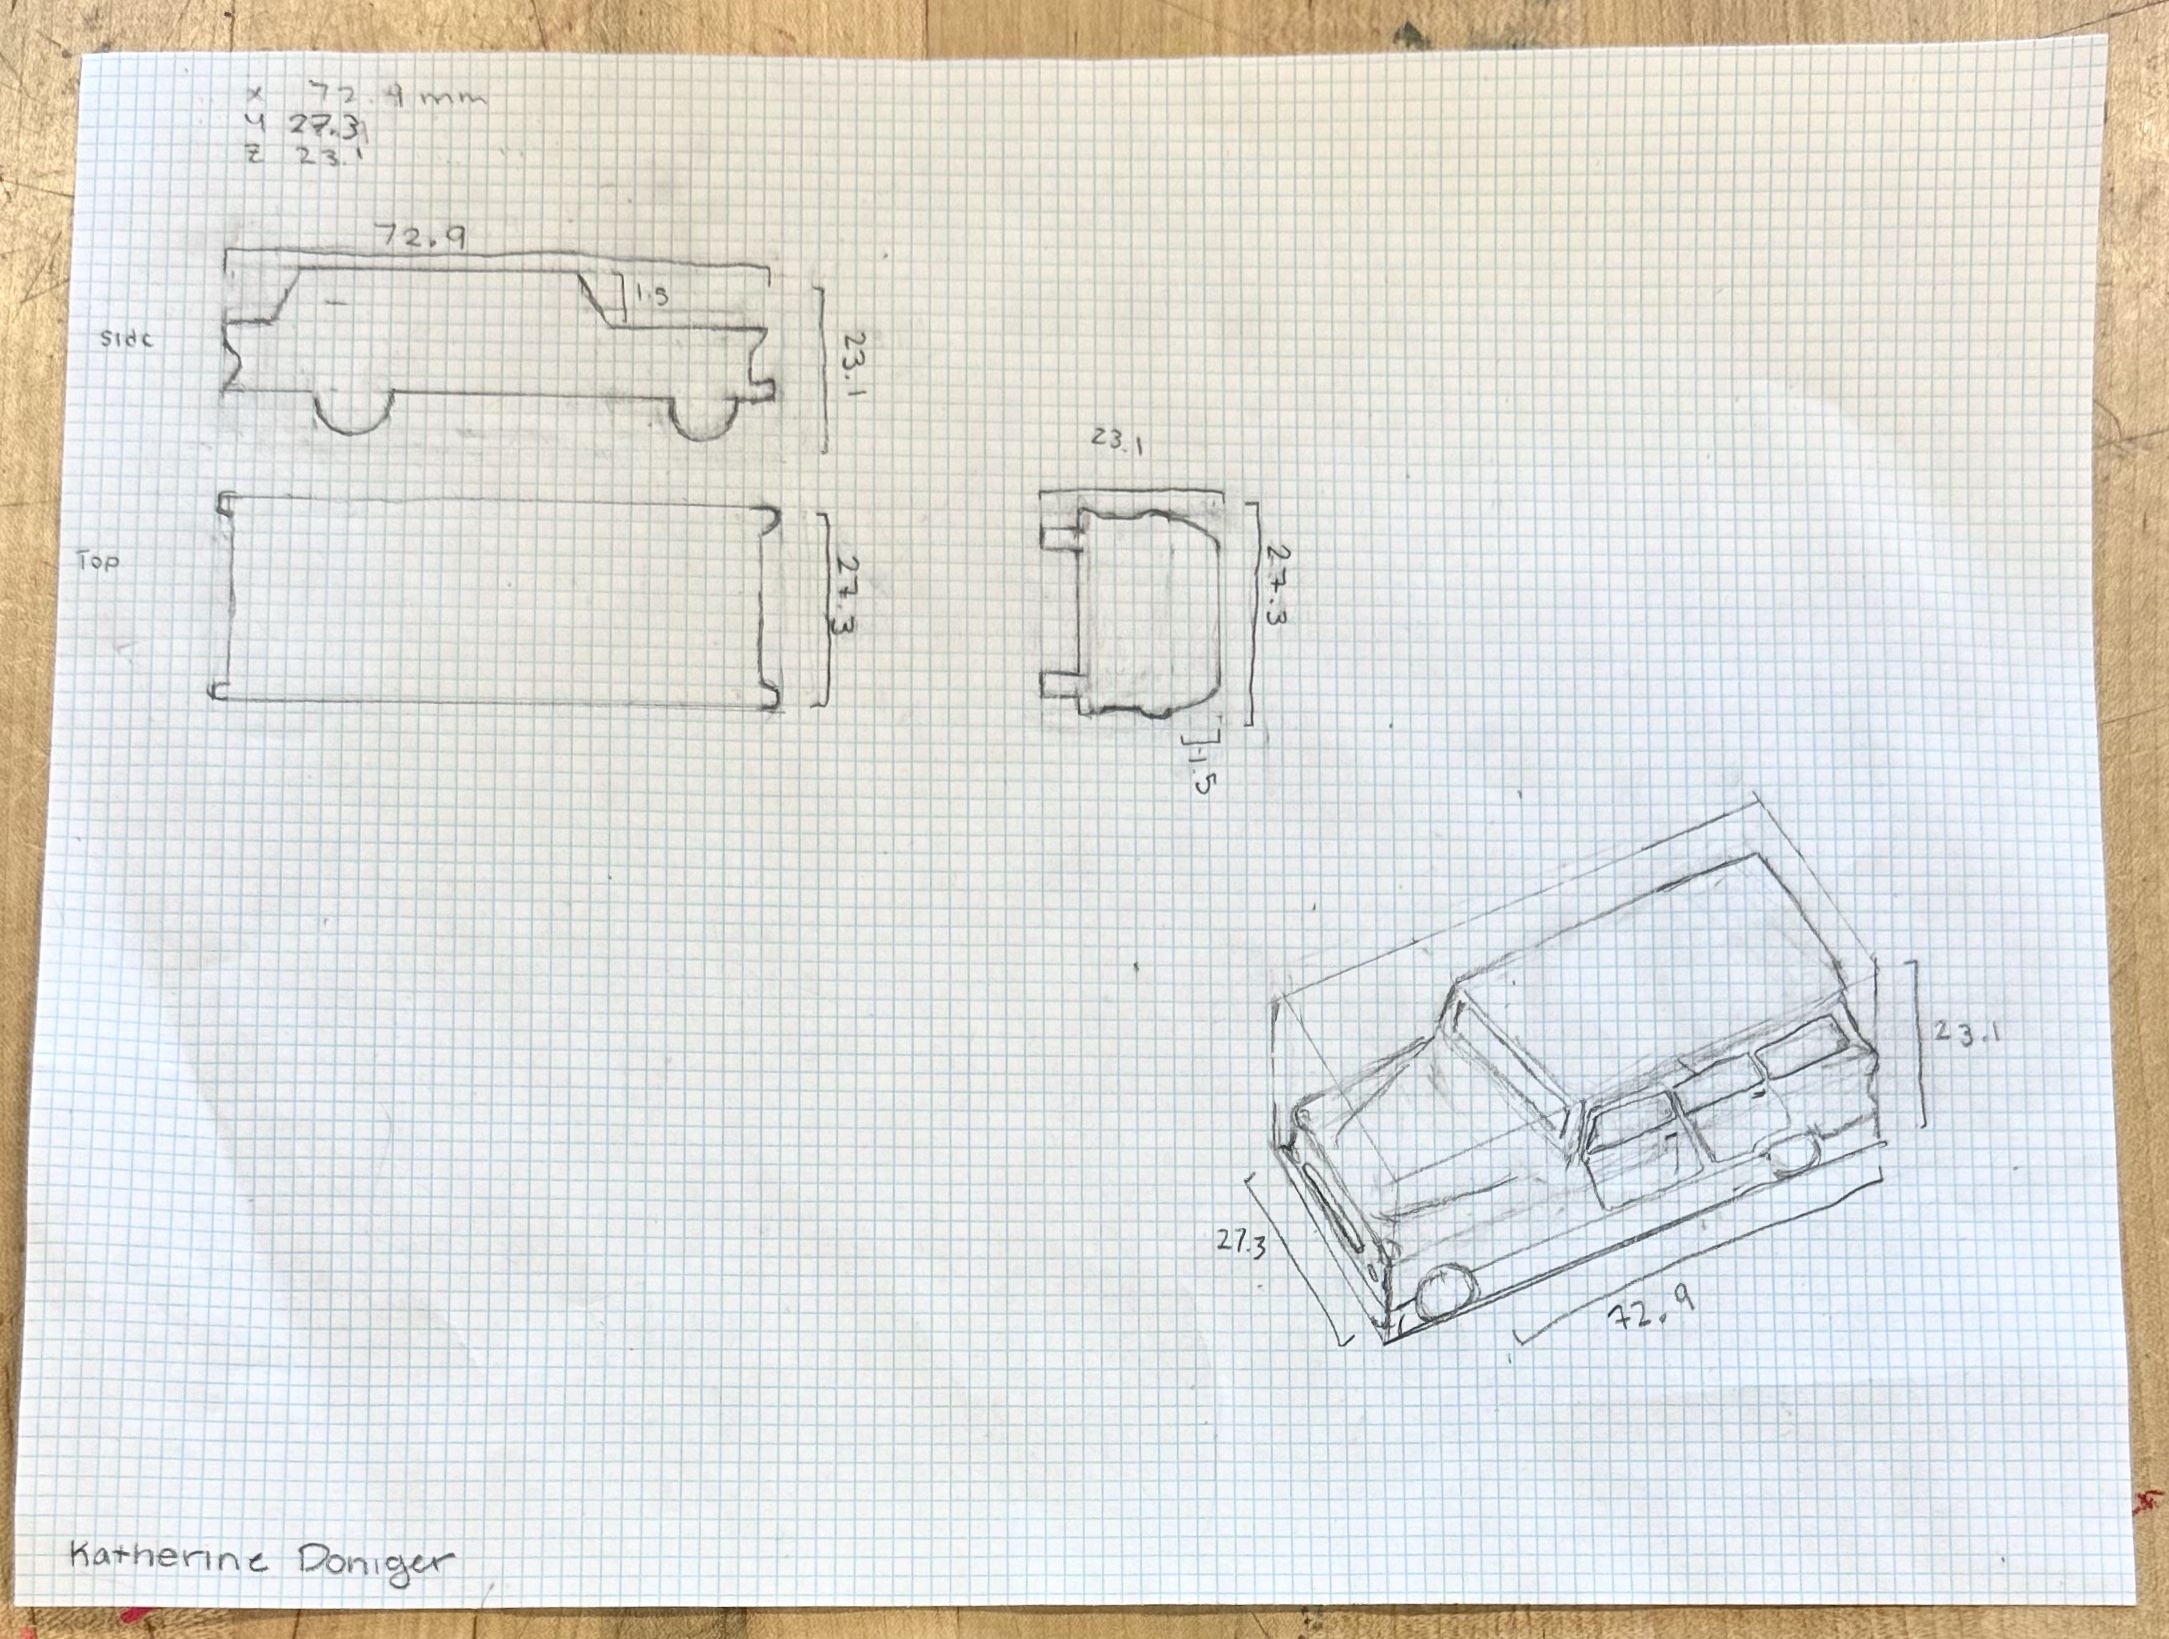 x 72.9 mm
y 27.3
z 23.1
72.9
1.5
Side
23.1
Top
27.3
23.1
27.3
1.5
23.1
27.3
72.9
Katherine Doniger